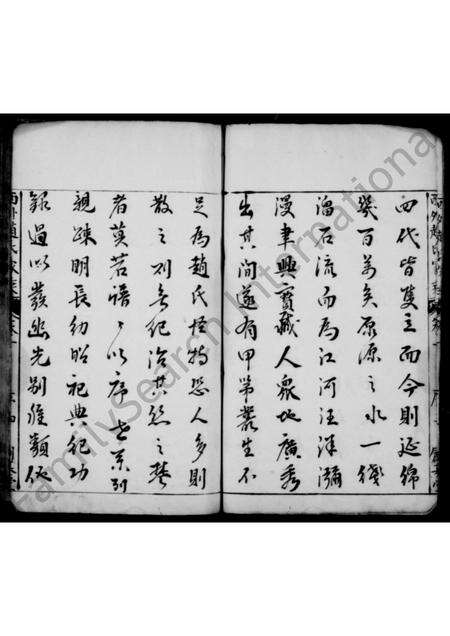 四代皆隻立而今則延綿
幾百萬矣原源之水一綫
溜石流而為江河汪洋瀰
漫聿興寶藏人眾地廣秀
出其間遂有甲第叢生不
足為趙氏怪特恐人多則
散之則無紀治其然之
者莫若譜譜以序世系別
親疎明長幼昭祀典紀功
過以發幽光別維類
FamilySearch International